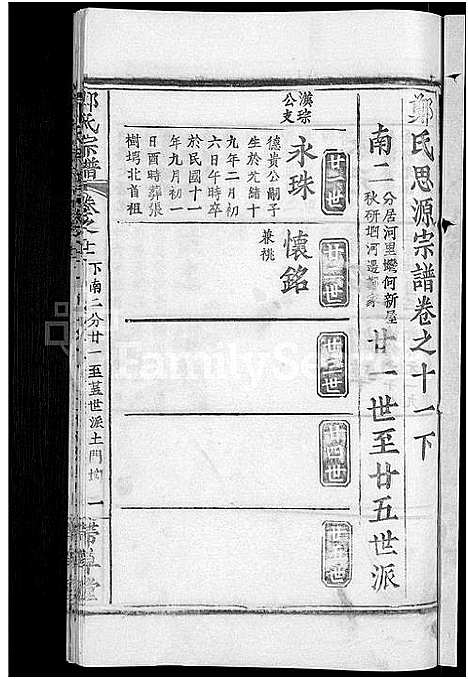 鄭氏思源宗譜卷之十一下
南二
分居河里灣何新屋
秋研堋河邊
廿一世至廿五世派
廿一世
廿二世
廿三世
廿四世
廿五世
漢宗
公支
永珠
德貴公嗣子
生於光緒十
九年二月初
六日午時卒
於民國十一
年九月初一
日酉時葬張
樹堋北首祖
懷銘
兼祧
鄭氏宗譜
卷之十一
下南二分廿一至
世派土門
一
書草堂
FamilySearch